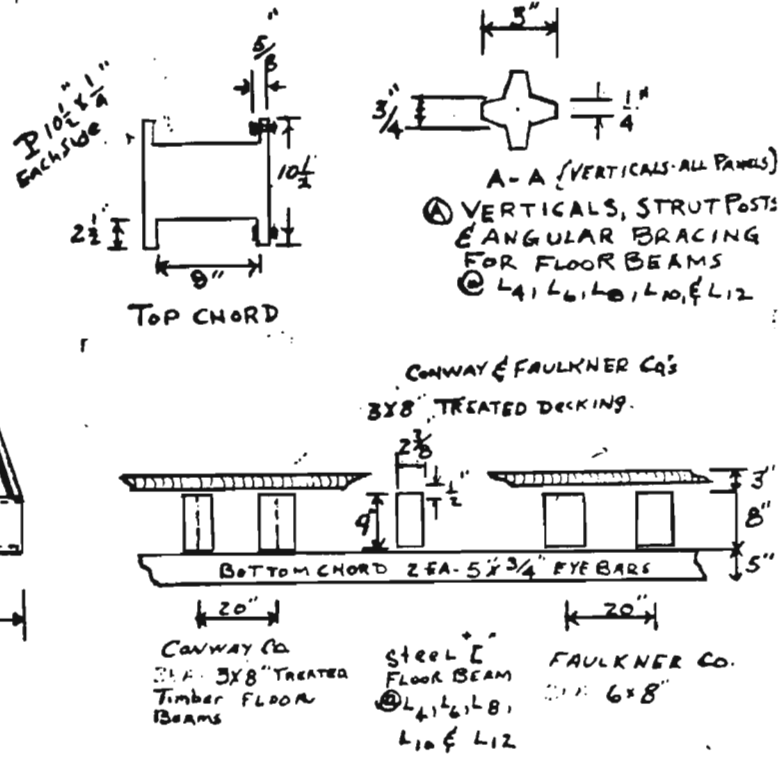 5/8"
3"
P 10 1/2" x 1/4"
EACH SIDE
3/4"
1/4"
10 1/2
2 1/2"
8"
TOP CHORD
A-A (VERTICALS-ALL PANELS)
Ⓐ VERTICALS, STRUT POSTS
& ANGULAR BRACING
FOR FLOOR BEAMS
@ L4, L6, L8, L10, & L12
CONWAY & FAULKNER CO'S
3X8" TREATED DECKING.
2 3/8
1/2"
9"
3"
8"
5"
BOTTOM CHORD 2 EA-5"x3/4" EYE BARS
20"
20"
CONWAY CO.
3X8" TREATED
Timber FLOOR
BEAMS
Steel "I"
FLOOR BEAM
@ L4, L6, L8,
L10 & L12
FAULKNER CO.
6x8"